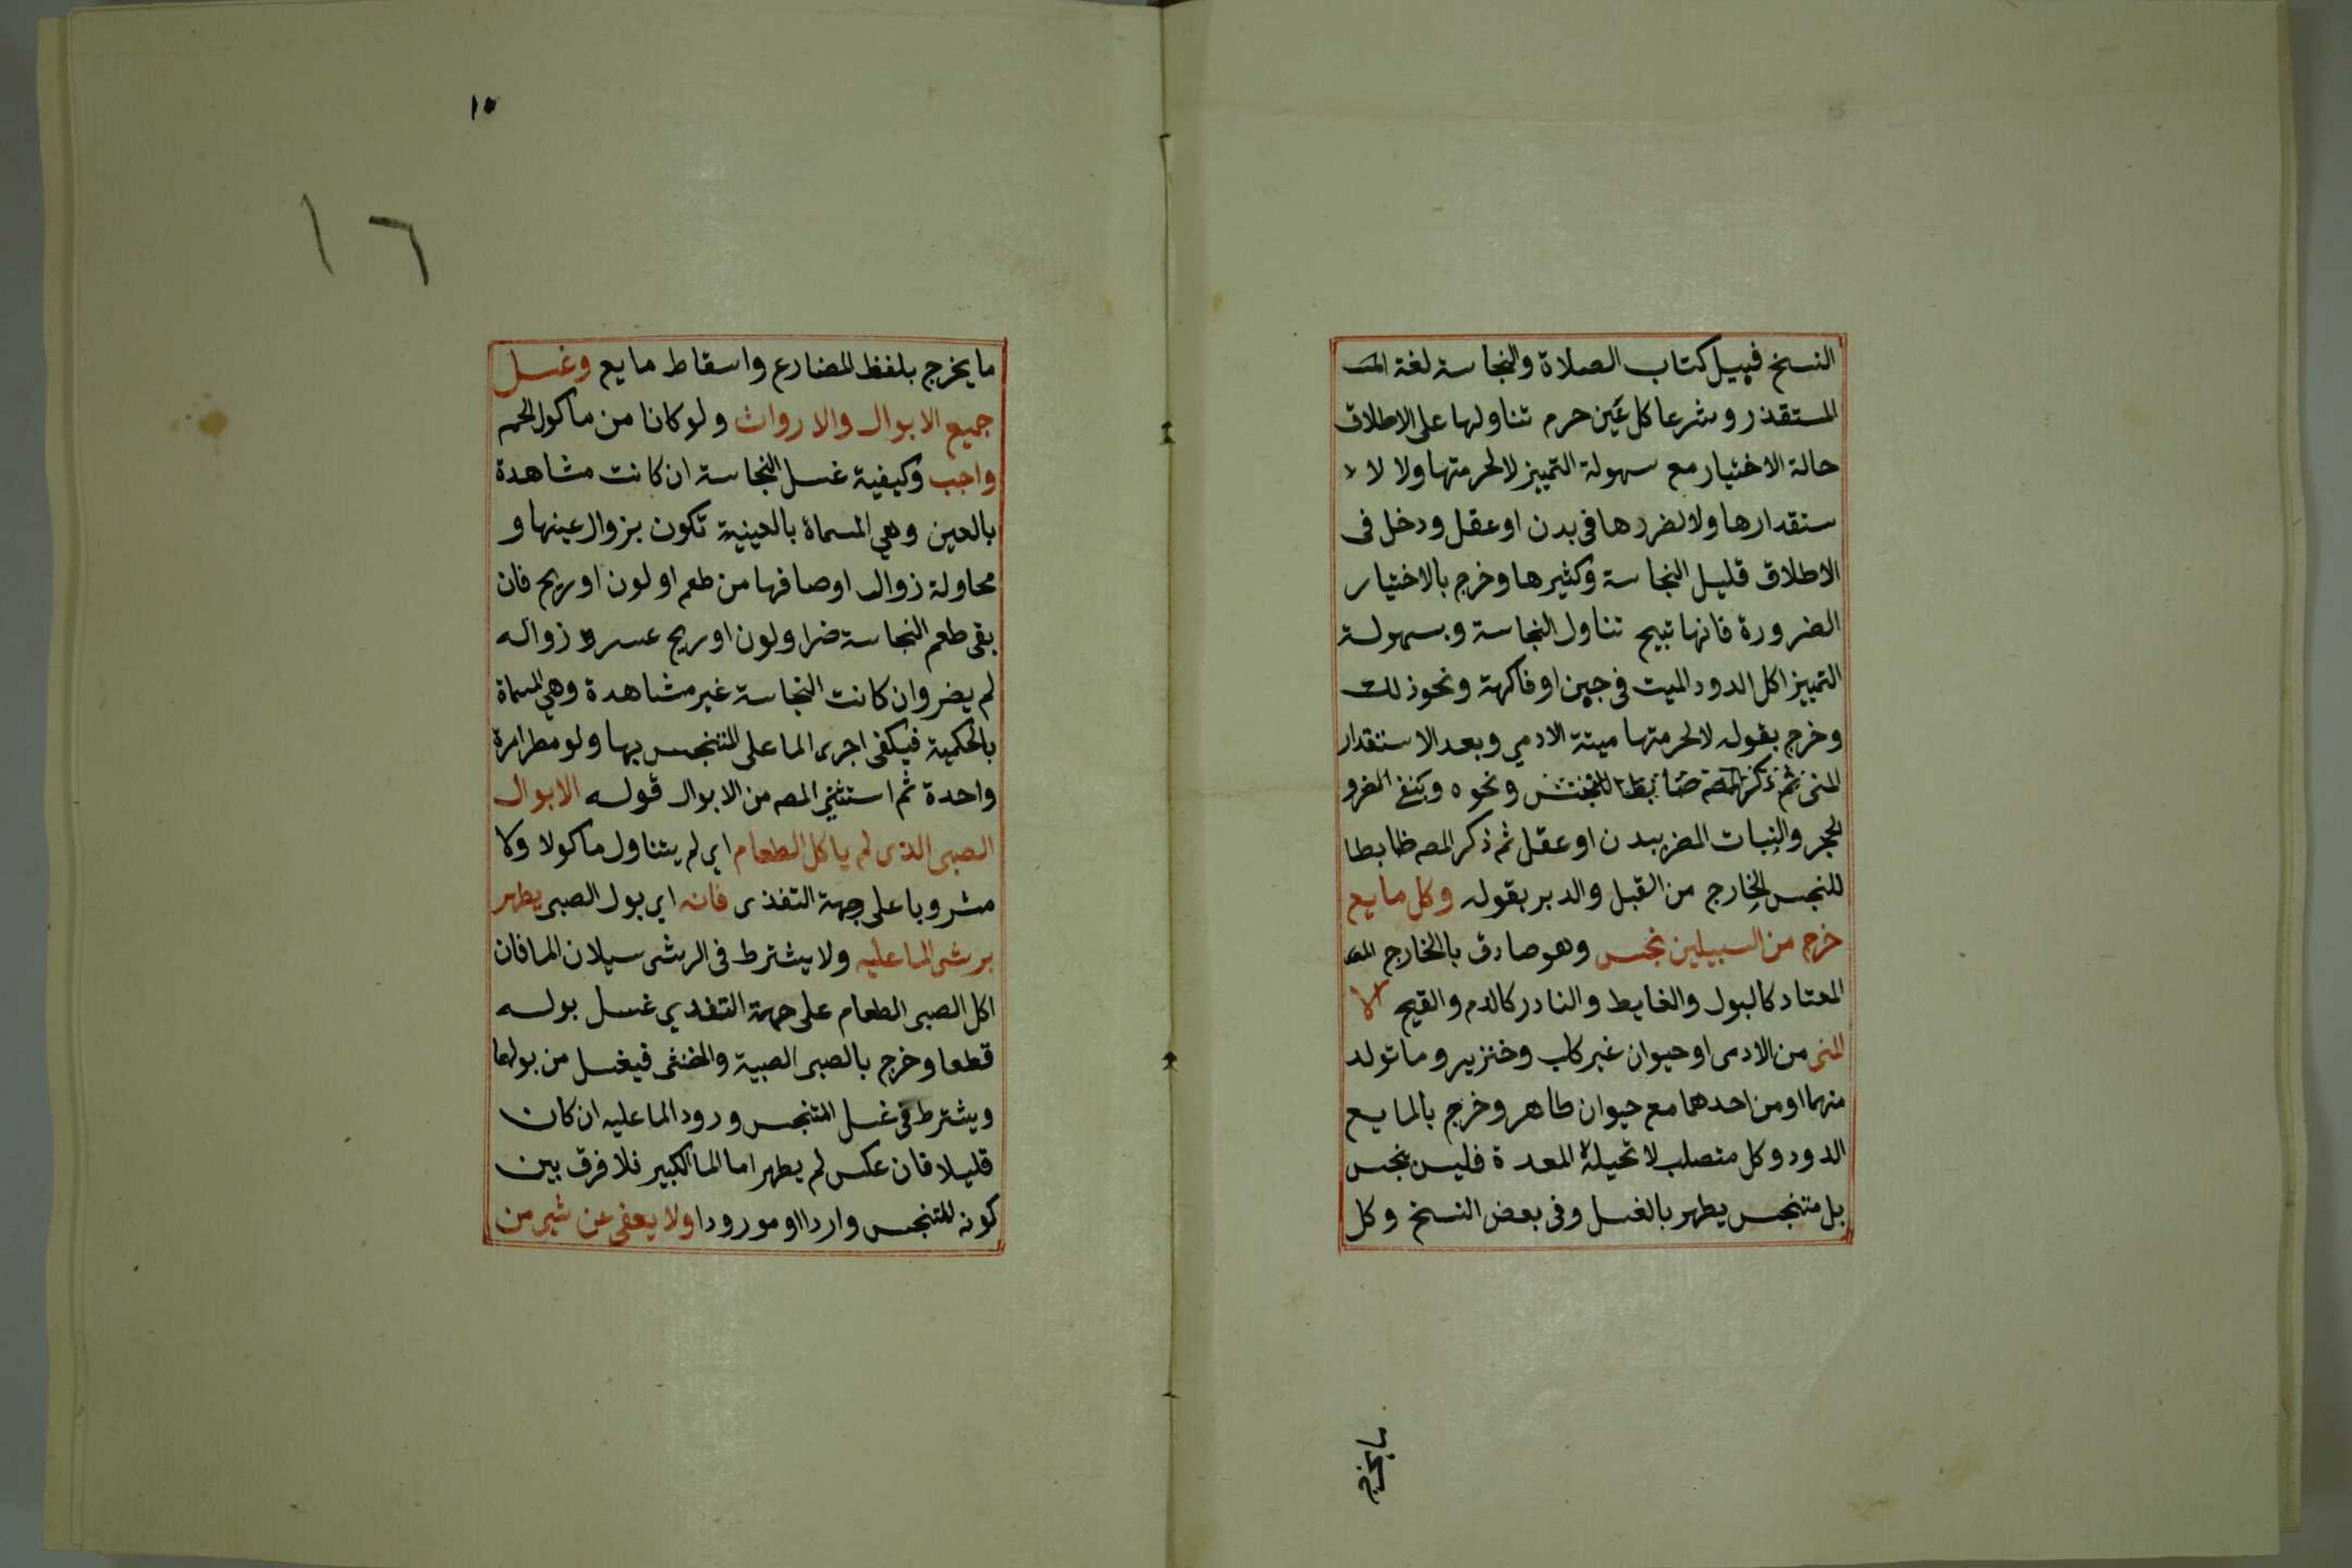 النسخ قبيل كتاب الصلاة والنجاسة لغة المست
المستقذر وشرعا كل عين حرم تناولها على الاطلاق
حالة الاختيار مع سهولة التمييز لا لحرمتها ولا لا
ستقدارها ولا لضررها فى بدن او عقل ودخل فى
الاطلاق قليل النجاسة وكثيرها وخرج بالاختيار
الضرورة فانها تبيح تناول النجاسة وبسهولة
التمييز اكل الدود الميت فى جبن او فاكهة ونحو ذلك
وخرج بقوله لا لحرمتها ميتة الادمي وبعد الاستقدار
المنى ثم ذكر المصه ضابطا ونحوه وبنفي الضرر
الحجر والنبات المضر ببدن او عقل ثم ذكر المصه ظابطا
للنجس الخارج من القبل والدبر بقوله وكل مايع
خرج من السبيلين نجس وهو صادق بالخارج المع
المعتاد كالبول والغايط والنادر كالدم والقيح الا
المنى من الادمى او حيوان غير كلب وخنزير وما تولد
منهما او من احدهما مع حيوان طاهر وخرج بالمايع
الدود وكل متصلب لا تحيله المعدة فليس بنجس
بل متنجس يطهر بالغسل وفى بعض النسخ وكل
ما يخرج
١٥
١٦
ما يخرج بلفظ المضارع واسقاط مايع وغسل
جميع الابوال والارواث ولو كانا من ماكول الحم
واجب وكيفية غسل النجاسة ان كانت مشاهدة
بالعين وهي المسماة بالعينية تكون بزوال عينها و
محاولة زوال اوصافها من طعم او لون او ريح فان
بقى طعم النجاسة ضر او لون او ريح عسر زواله
لم يضر وان كانت النجاسة غير مشاهدة وهي المسماة
بالحكمية فيكفى اجرى الما على المتنجس بها ولو مطرا مرة
واحدة ثم استثنى المصه من الابوال قوله الابوال
الصبى الذى لم ياكل الطعام اي لم يتناول ماكولا ولا
مشروبا على جهة التغذى فانه اي بول الصبى يطهر
برش الما عليه ولا يشترط فى الرش سيلان الما فان
اكل الصبى الطعام على جهة التغدي غسل بوله
قطعا وخرج بالصبى الصبية والخنثى فيغسل من بولهما
ويشترط فى غسل المتنجس ورود الما عليه ان كان
قليلا فان عكس لم يطهر اما الما الكبير فلا فرق بين
كونه للمتنجس واردا او مورودا ولا يعفى عن شي من